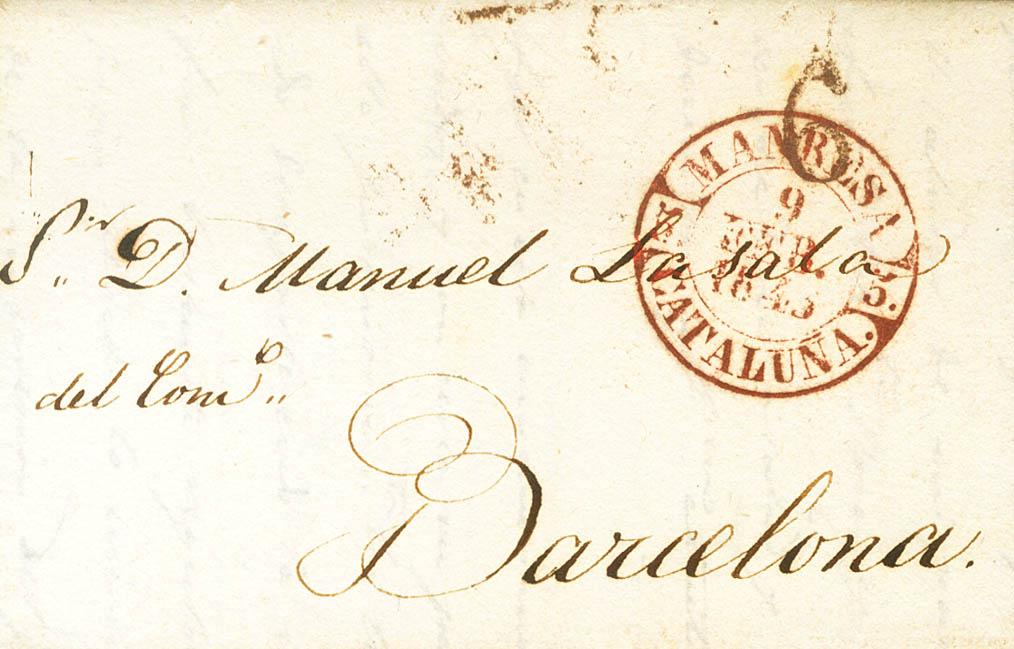 6
MANRESA
9
1843
CATALUÑA.
Sr. D. Manuel Lasala
del Como.
Barcelona.